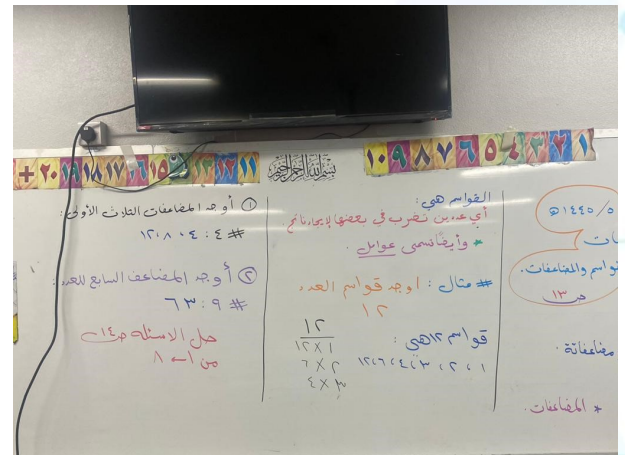 ١ ٢ ٣ ٤ ٥ ٦ ٧ ٨ ٩ ١٠
بسم الله الرحمن الرحيم
١١ ١٢ ١٣ ١٥ ١٦ ١٧ ١٨ ١٩ ٢٠ +
١٤٤٥/٥
ات
واسم والمضاعفات.
ص ١٣
مضاعفاتة.
* المضاعفات.
القواسم هي:
أي عددين تضرب في بعضها لإيجاد ناتج
* وأيضًا تسمى عوامل.
# مثال: أوجد قواسم العدد
١٢
١٢
١ × ١٢
٢ × ٦
٣ × ٤
قواسم ١٢ هي:
١، ٢، ٣، ٤، ٦، ١٢
① أوجد المضاعفات الثلاث الأولى:
# ٤: ٤، ٨، ١٢
② أوجد المضاعف السابع للعدد:
# ٩: ٦٣
حل الاسئلة ص ١٤
من ١ ← ٨